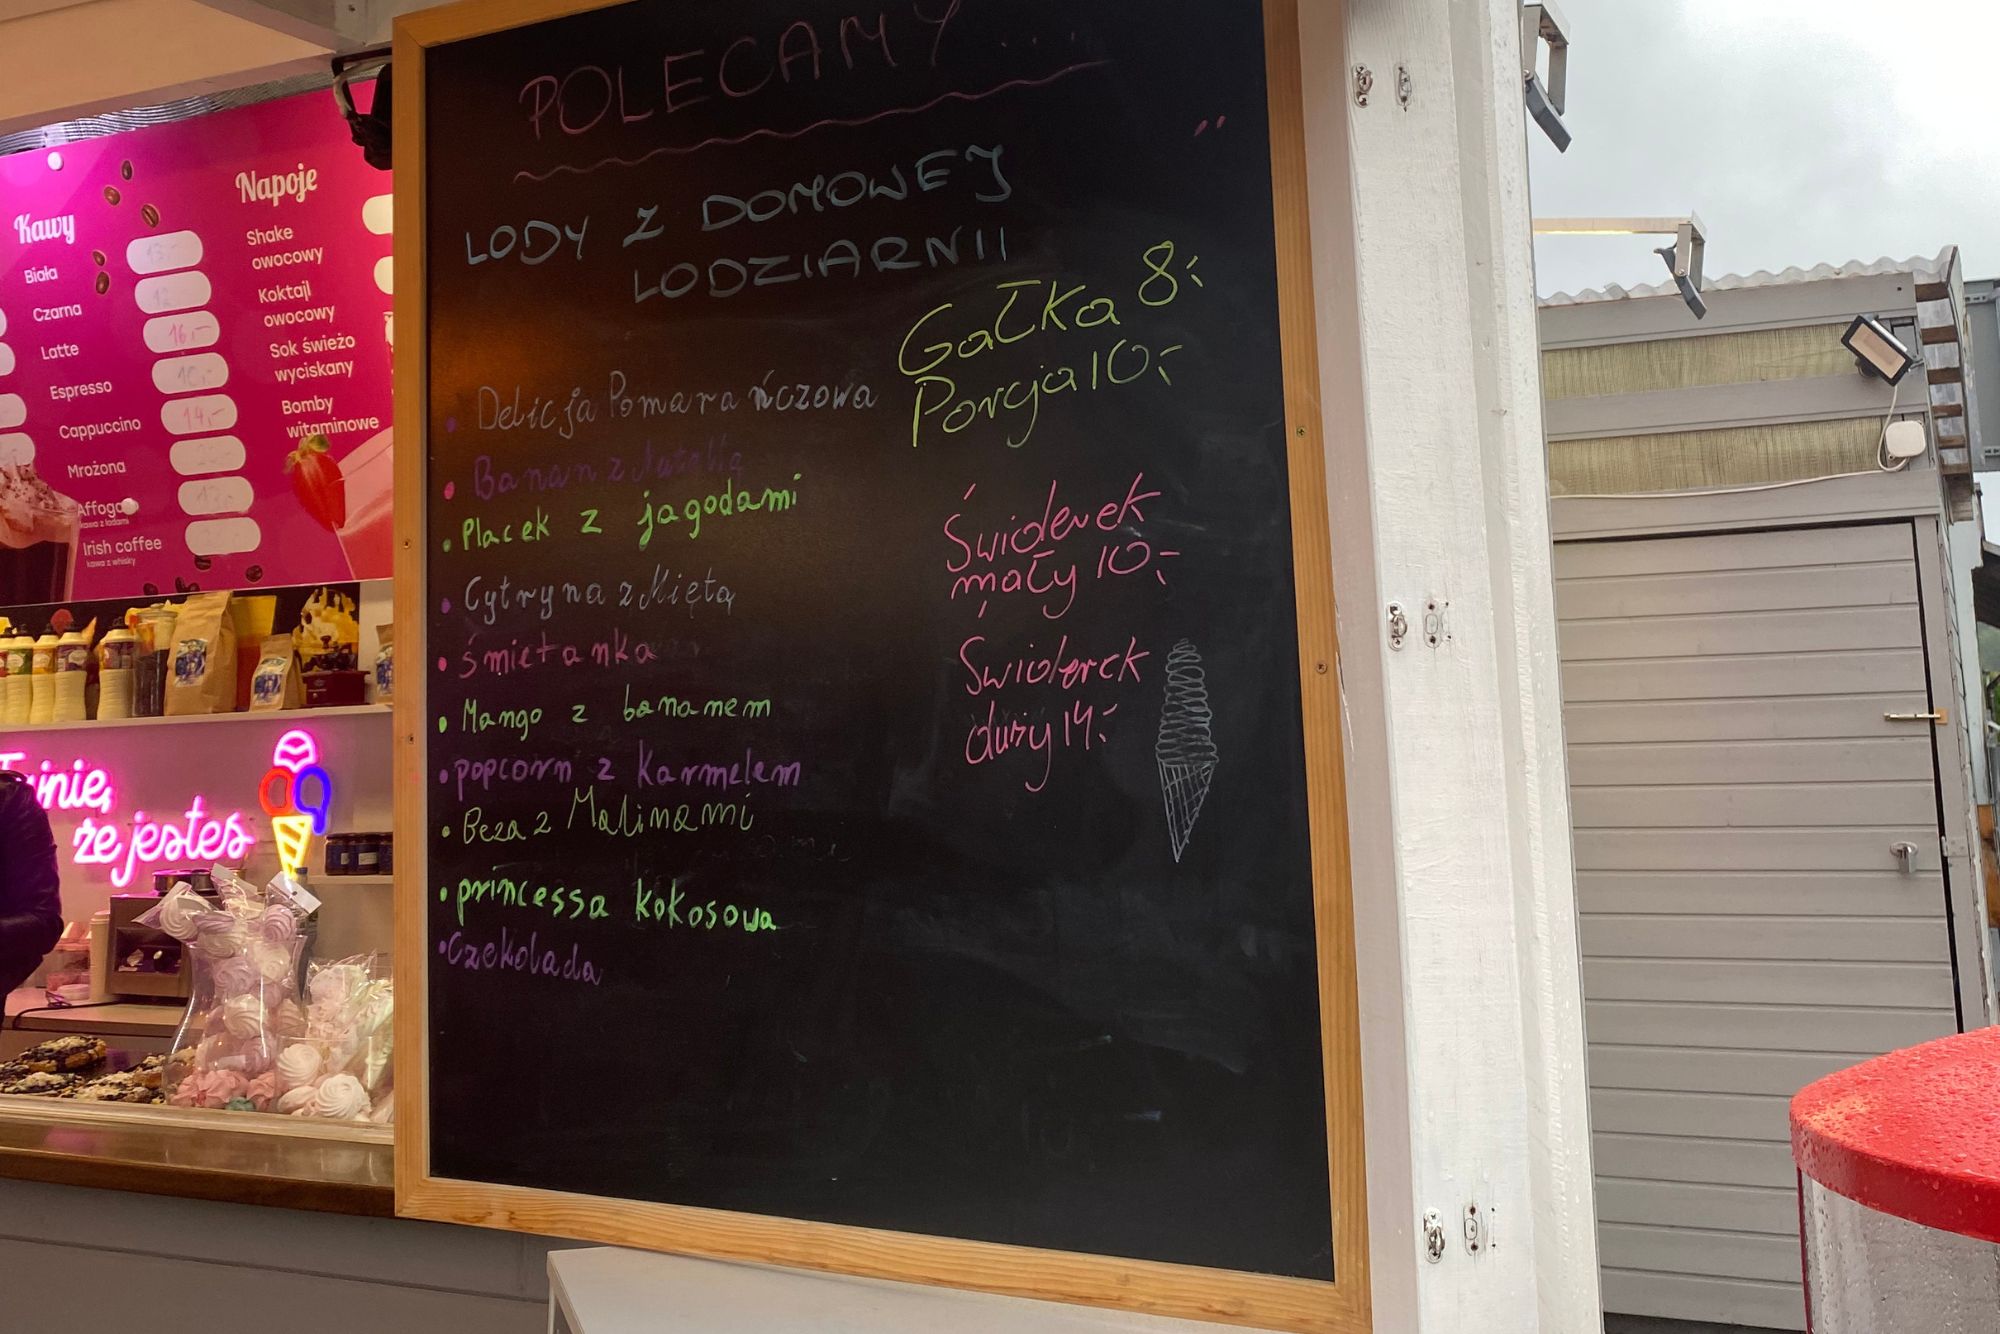 Kawy
Biała 13,-
Czarna 12
Latte 16,-
Espresso 10,-
Cappuccino 14,-
Mrożona
Affoga
kawa z lodami
Irish coffee
kawa z whisky
Napoje
Shake
owocowy
Koktajl
owocowy
Sok świeżo
wyciskany
Bomby
witaminowe
że jesteś
POLECAMY...
LODY Z DOMOWEJ
LODZIARNII
• Delicja Pomarańczowa
• Banan z Nutellą
• Placek z jagodami
• Cytryna z Miętą
• śmietanka
• Mango z bananem
• popcorn z karmelem
• Beza z Malinami
• princessa kokosowa
• Czekolada
Gałka 8,-
Porcja 10,-
Świderek
mały 10,-
Świderek
duży 14,-